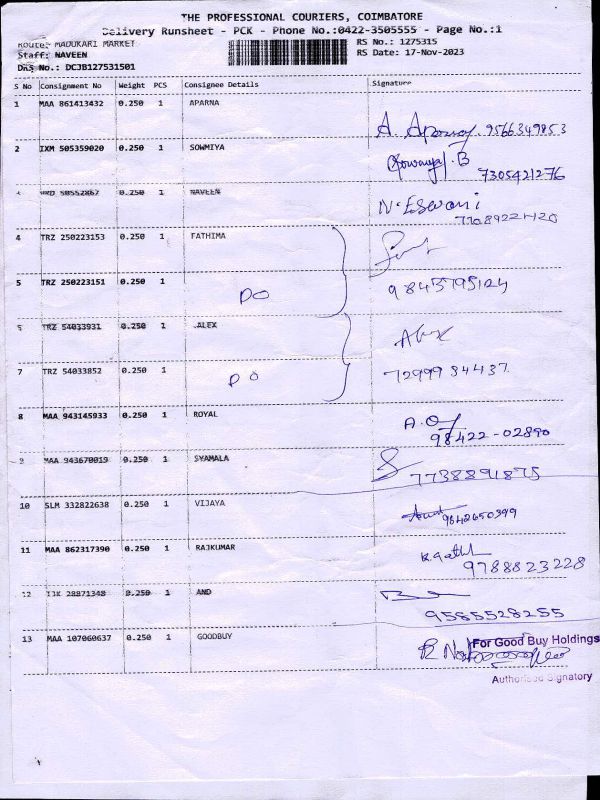 THE PROFESSIONAL COURIERS, COIMBATORE
Delivery Runsheet - PCK - Phone No.:0422-3505555 - Page No.:1
Route: MADUKARI MARKET RS No.: 1275315
Staff: NAVEEN RS Date: 17-Nov-2023
DRS No.: DCJB127531501
S No Consignment No Weight PCS Consignee Details Signature
1 MAA 861413432 0.250 1 APARNA
9566349853
2 IXM 505359020 0.250 1 SOWMIYA
7305421276
50552867 0.250 1 NAVEEN N. Eswari
4 TRZ 250223153 0.250 1 FATHIMA
5 TRZ 250223151 0.250 1
DO
6 TRZ 54033931 0.250 1 .ALEX Alex
7 TRZ 54033852 0.250 1 72999 34437
DO
8 MAA 943145933 0.250 1 ROYAL
98422-02890
9 MAA 943670019 0.250 1 SYAMALA
7738891875
10 SLM 332822638 0.250 1 VIJAYA
9842650399
11 MAA 862317390 0.250 1 RAJKUMAR
9788823228
12 IJK 28871348 0.250 1 AND
9585528255
13 MAA 107060637 0.250 1 GOODBUY For Good Buy Holdings
Authorised Signatory